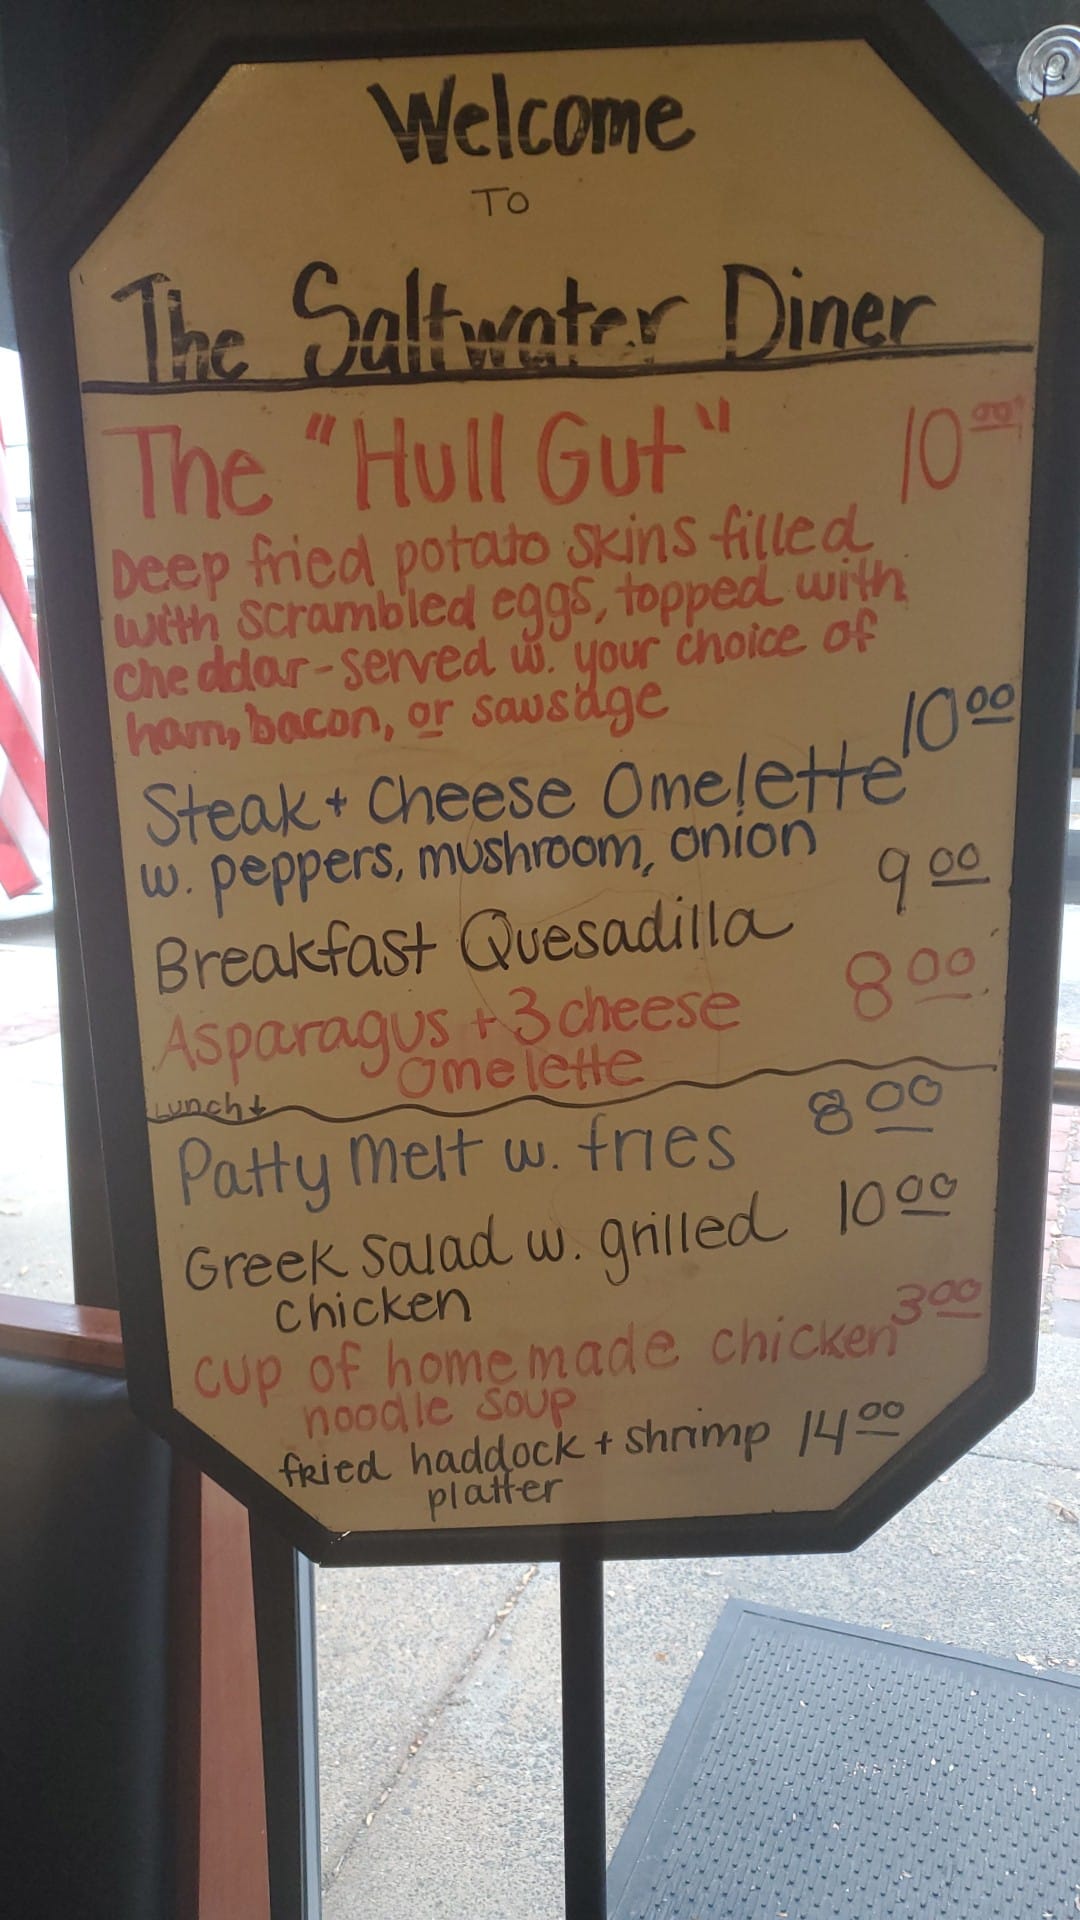 Welcome
TO
The Saltwater Diner
The "Hull Gut" 10 00
Deep fried potato skins filled
with scrambled eggs, topped with
cheddar-served w. your choice of
ham, bacon, or sausage
Steak + Cheese Omelette 10 00
w. peppers, mushroom, onion
Breakfast Quesadilla 9 00
Asparagus + 3 cheese 8 00
omelette
Lunch ↓
Patty melt w. fries 8 00
Greek Salad w. grilled 10 00
chicken
cup of homemade chicken 3 00
noodle soup
fried haddock + shrimp 14 00
platter